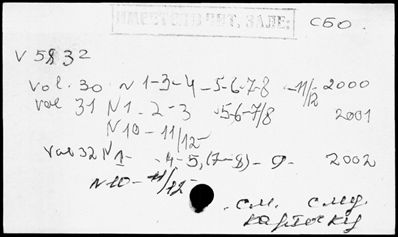 ИМЕЕТСЯ В ЧИТ. ЗАЛЕ:
СБО.
V 5832
vol. 30 N 1-3-4-5-6-7-8 -11/12 2000
vol 31 N1-2-3 -5-6-7/8 2001
N10-11/12-
vol 32 N1- -4-5,(7-8)-9- 2002
N10-11/12-
.см. след.
карточку